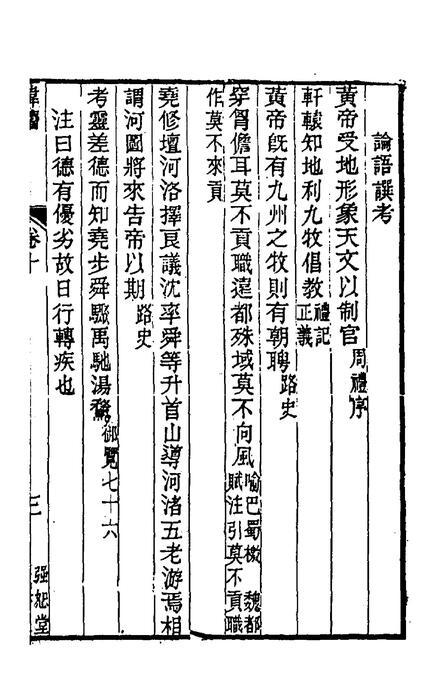 論語譔考
黃帝受地形象天文以制官周禮序
軒轅知地利九牧倡教禮記正義
黃帝旣有九州之牧則有朝聘路史
穿胷儋耳莫不貢職遠都殊域莫不向風喻巴蜀檄 魏都賦注引莫不貢職
作莫不來貢
堯修壇河洛擇良議沈率舜等升首山導河渚五老游焉相
謂河圖將來告帝以期路史
考靈差德而知堯步舜驟禹馳湯騖御覽七十六
注曰德有優劣故曰行轉疾也
卷十
三
强恕堂